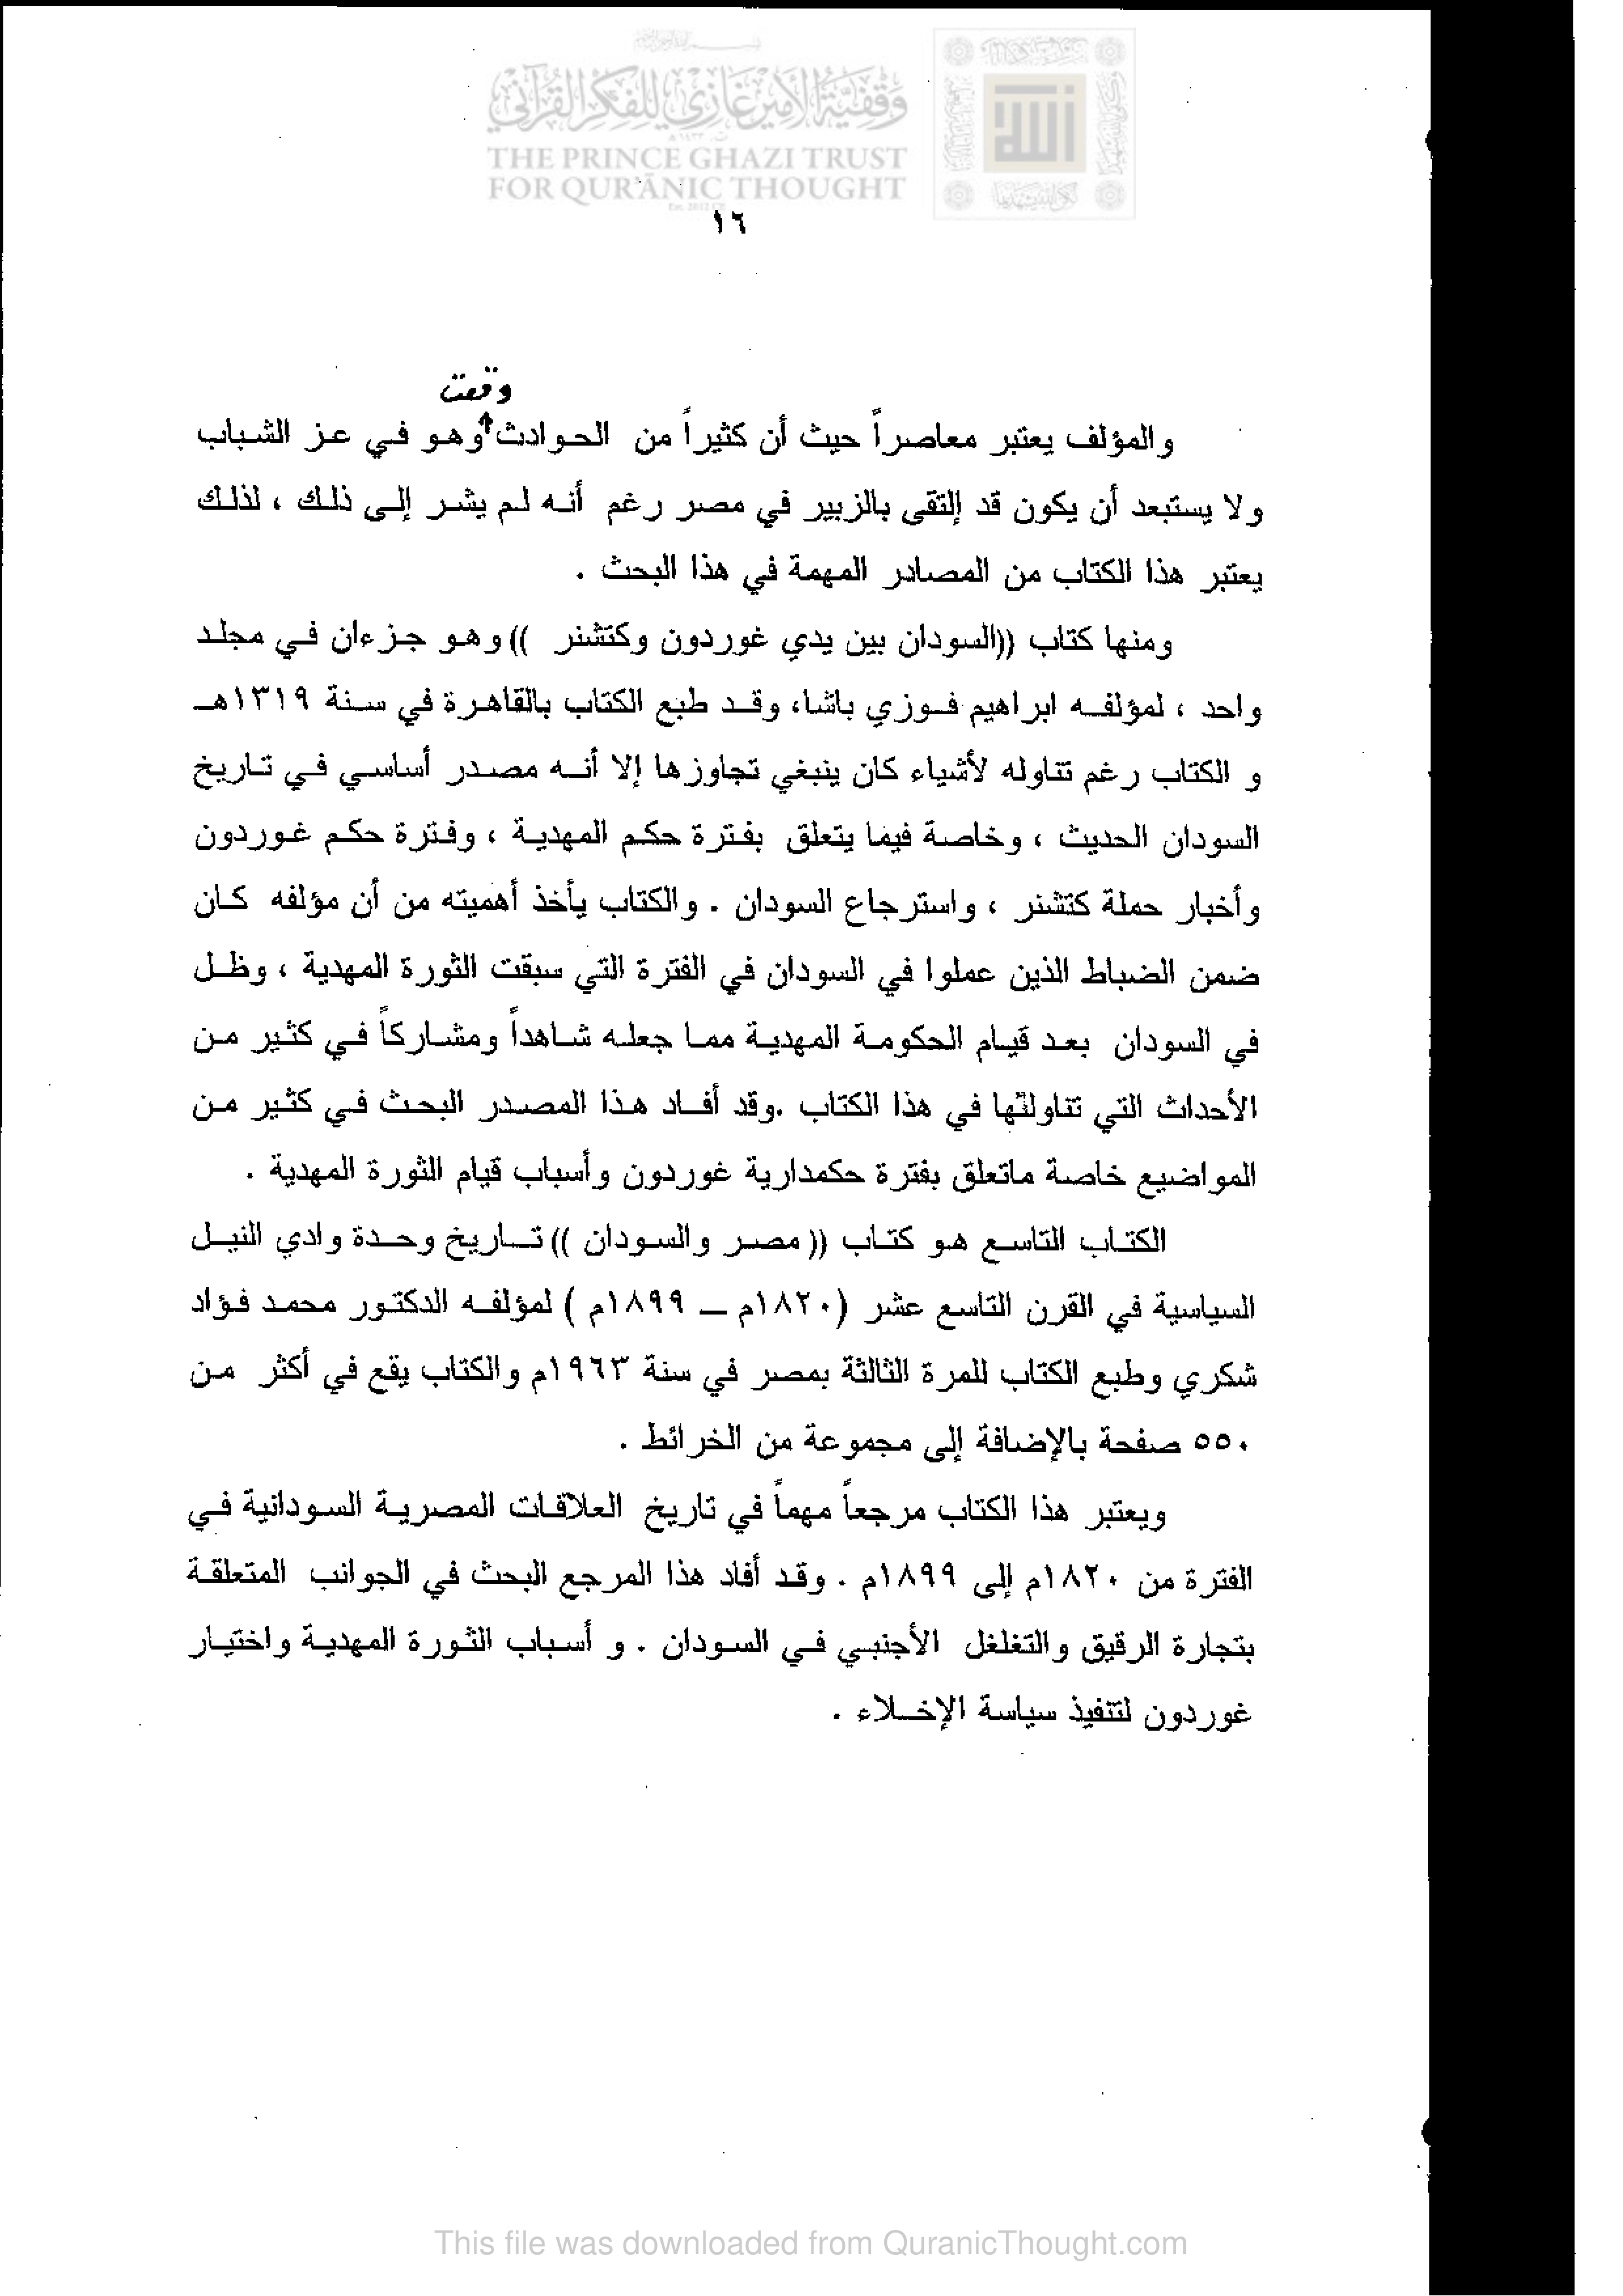 وقفية الأمير غازي للفكر القرآني
THE PRINCE GHAZI TRUST
FOR QUR'ĀNIC THOUGHT
Est. 2012 CE
١٦
وقعت
والمؤلف يعتبر معاصراً حيث أن كثيراً من الحوادث وهو في عز الشباب
ولا يستبعد أن يكون قد إلتقى بالزبير في مصر رغم أنه لم يشر إلى ذلك ، لذلك
يعتبر هذا الكتاب من المصادر المهمة في هذا البحث .
ومنها كتاب ((السودان بين يدي غوردون وكتشنر )) وهو جزءان في مجلد
واحد ، لمؤلفه ابراهيم فوزي باشا، وقد طبع الكتاب بالقاهرة في سنة ١٣١٩هـ
و الكتاب رغم تناوله لأشياء كان ينبغي تجاوزها إلا أنه مصدر أساسي في تاريخ
السودان الحديث ، وخاصة فيما يتعلق بفترة حكم المهدية ، وفترة حكم غوردون
وأخبار حملة كتشنر ، واسترجاع السودان . والكتاب يأخذ أهميته من أن مؤلفه كان
ضمن الضباط الذين عملوا في السودان في الفترة التي سبقت الثورة المهدية ، وظل
في السودان بعد قيام الحكومة المهدية مما جعله شاهداً ومشاركاً في كثير من
الأحداث التي تناولتها في هذا الكتاب .وقد أفاد هذا المصدر البحث في كثير من
المواضيع خاصة ماتعلق بفترة حكمدارية غوردون وأسباب قيام الثورة المهدية .
الكتاب التاسع هو كتاب (( مصر والسودان )) تاريخ وحدة وادي النيل
السياسية في القرن التاسع عشر (١٨٢٠م – ١٨٩٩م ) لمؤلفه الدكتور محمد فؤاد
شكري وطبع الكتاب للمرة الثالثة بمصر في سنة ١٩٦٣م والكتاب يقع في أكثر من
٥٥٠ صفحة بالإضافة إلى مجموعة من الخرائط .
ويعتبر هذا الكتاب مرجعاً مهماً في تاريخ العلاقات المصرية السودانية في
الفترة من ١٨٢٠م إلى ١٨٩٩م . وقد أفاد هذا المرجع البحث في الجوانب المتعلقة
بتجارة الرقيق والتغلغل الأجنبي في السودان . و أسباب الثورة المهدية واختيار
غوردون لتنفيذ سياسة الإخلاء .
This file was downloaded from QuranicThought.com